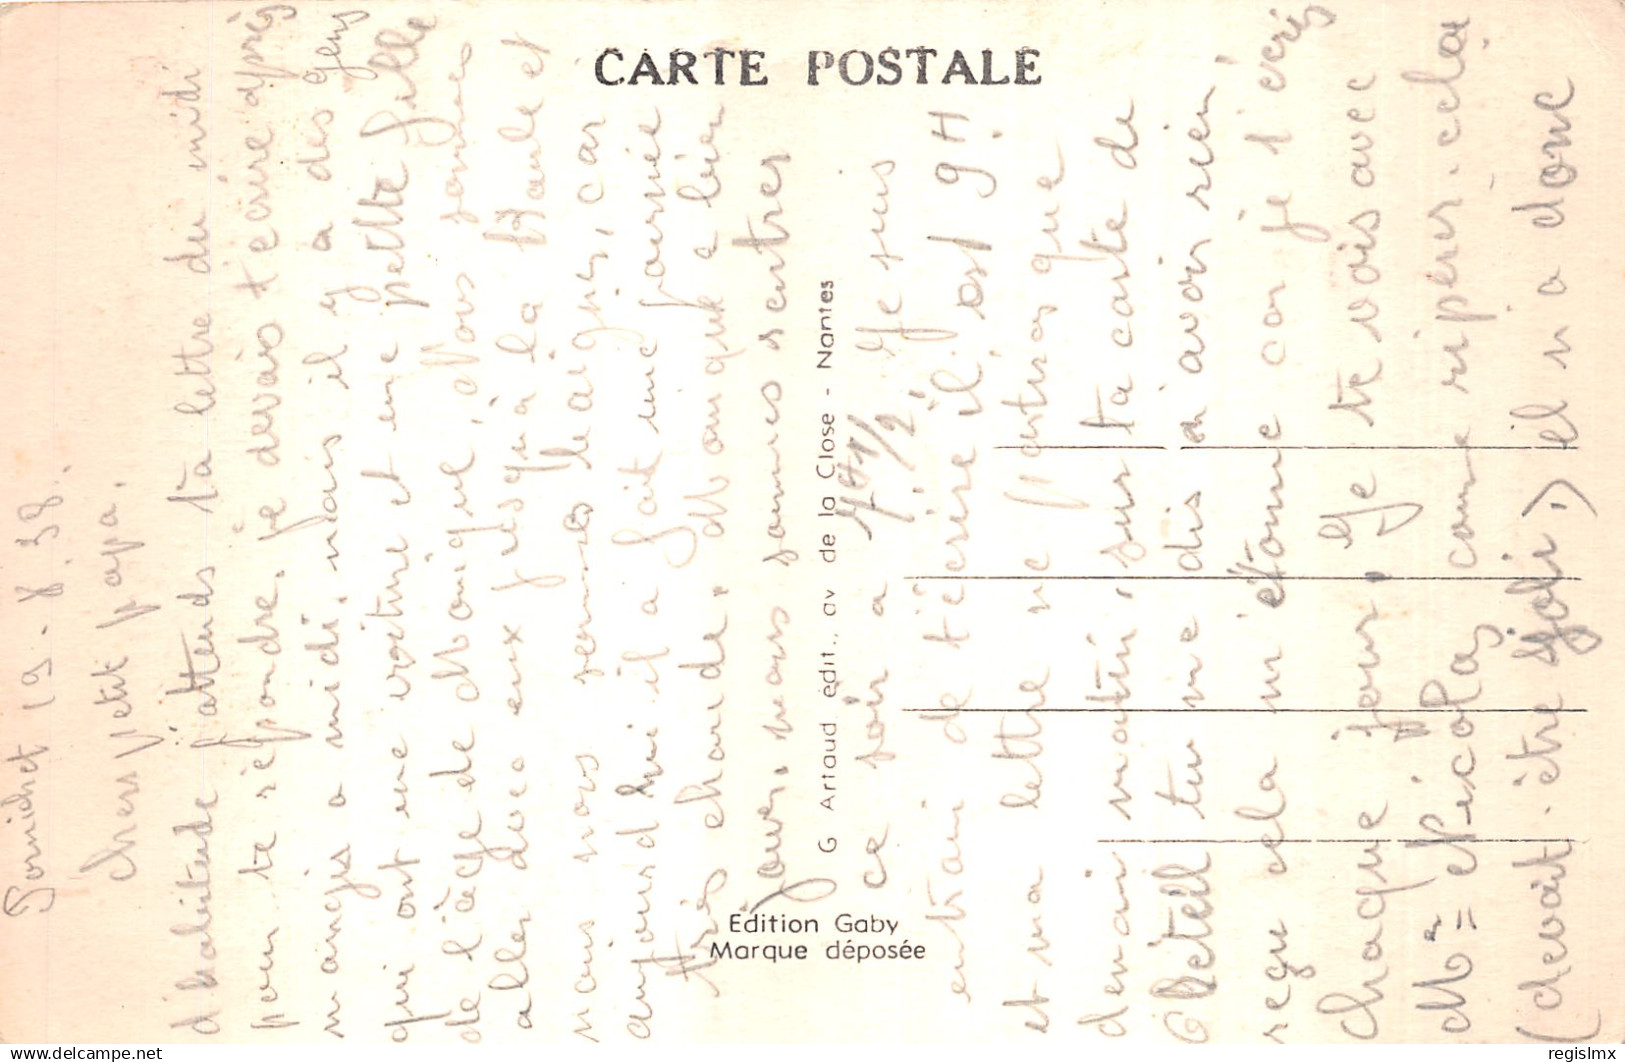 CARTE POSTALE
Pornichet 19-8-38.
cher petit papa.
d'habitude j'attends ta lettre du midi
pour te répondre, je devais t'écrire après
manger a midi, mais il y a des gens
qui ont une voiture et une petite fille
de l'âge de Monique, Nous sommes
aller avec eux jusqu'à la Baule et
nous nous sommes baignés, car
aujourd hui il a fait une journée
très chaude. Monique a bien
jouer. nous sommes rentrés
ce soir a 7H1/2, Je suis
entrain de t'écrire il est 9H.
et ma lettre ne partira que
demain matin, sur ta carte de
tu me dis n'avoir rien
reçu cela m'étonne car je t'écris
chaque jour. Je te vois avec
Mr Nicolas comme cela
(devait être joli,) il n a donc
G Artaud édit., av de la Close - Nantes
Edition Gaby
Marque déposée
https://www.delcampe.net
regislmx